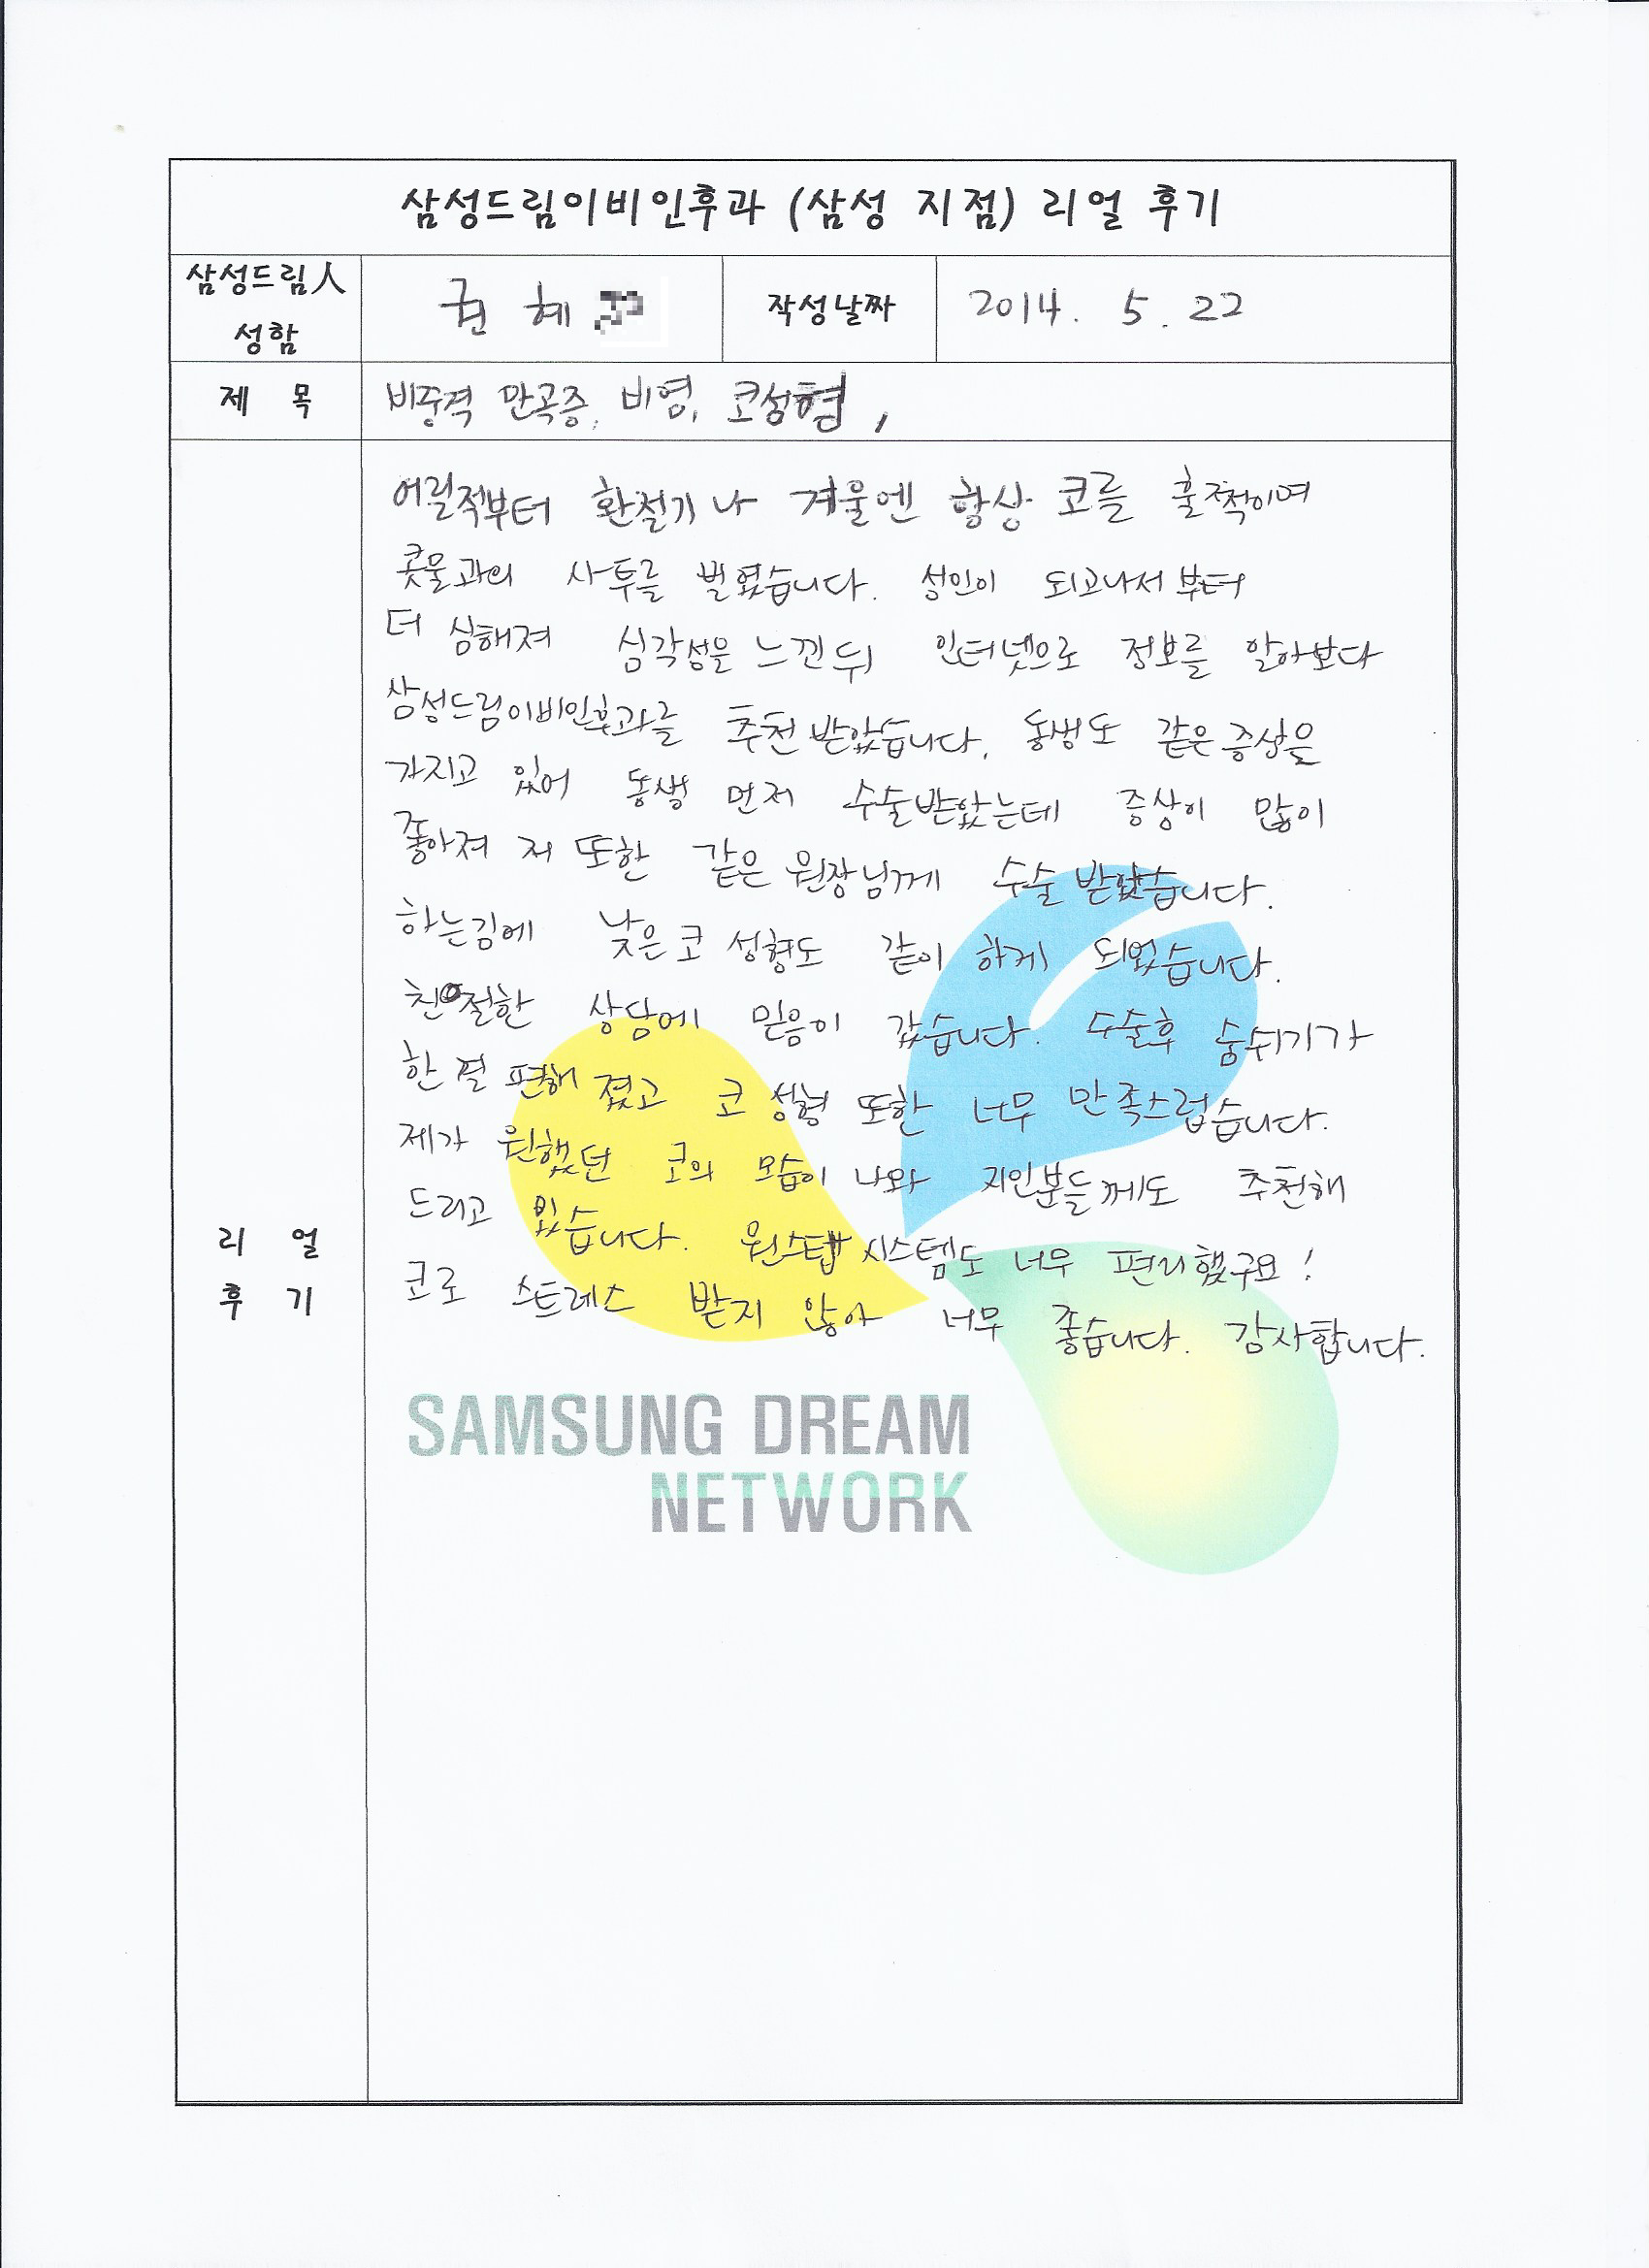 삼성드림이비인후과 (삼성 지점) 리얼 후기
삼성드림人
성함
권 혜
작성날짜
2014. 5. 22
제 목
비중격 만곡증, 비염, 코성형,
어릴적부터 환절기나 겨울엔 항상 코를 훌쩍이며
콧물과의 사투를 벌였습니다. 성인이 되고나서부터
더 심해져 심각성을 느낀뒤 인터넷으로 정보를 알아보다
삼성드림이비인후과를 추천받았습니다. 동생도 같은 증상을
가지고 있어 동생 먼저 수술받았는데 증상이 많이
좋아져 저 또한 같은 원장님께 수술 받았습니다.
하는김에 낮은 코 성형도 같이 하게 되었습니다.
친절한 상담에 믿음이 갔습니다. 수술후 숨쉬기가
한결 편해 졌고 코 성형 또한 너무 만족스럽습니다.
제가 원했던 코의 모습이 나와 지인분들께도 추천해
드리고 있습니다. 원스탭 시스템도 너무 편리했구요!
코로 스트레스 받지 않아 너무 좋습니다. 감사합니다.
리 얼
후 기
SAMSUNG DREAM
NETWORK